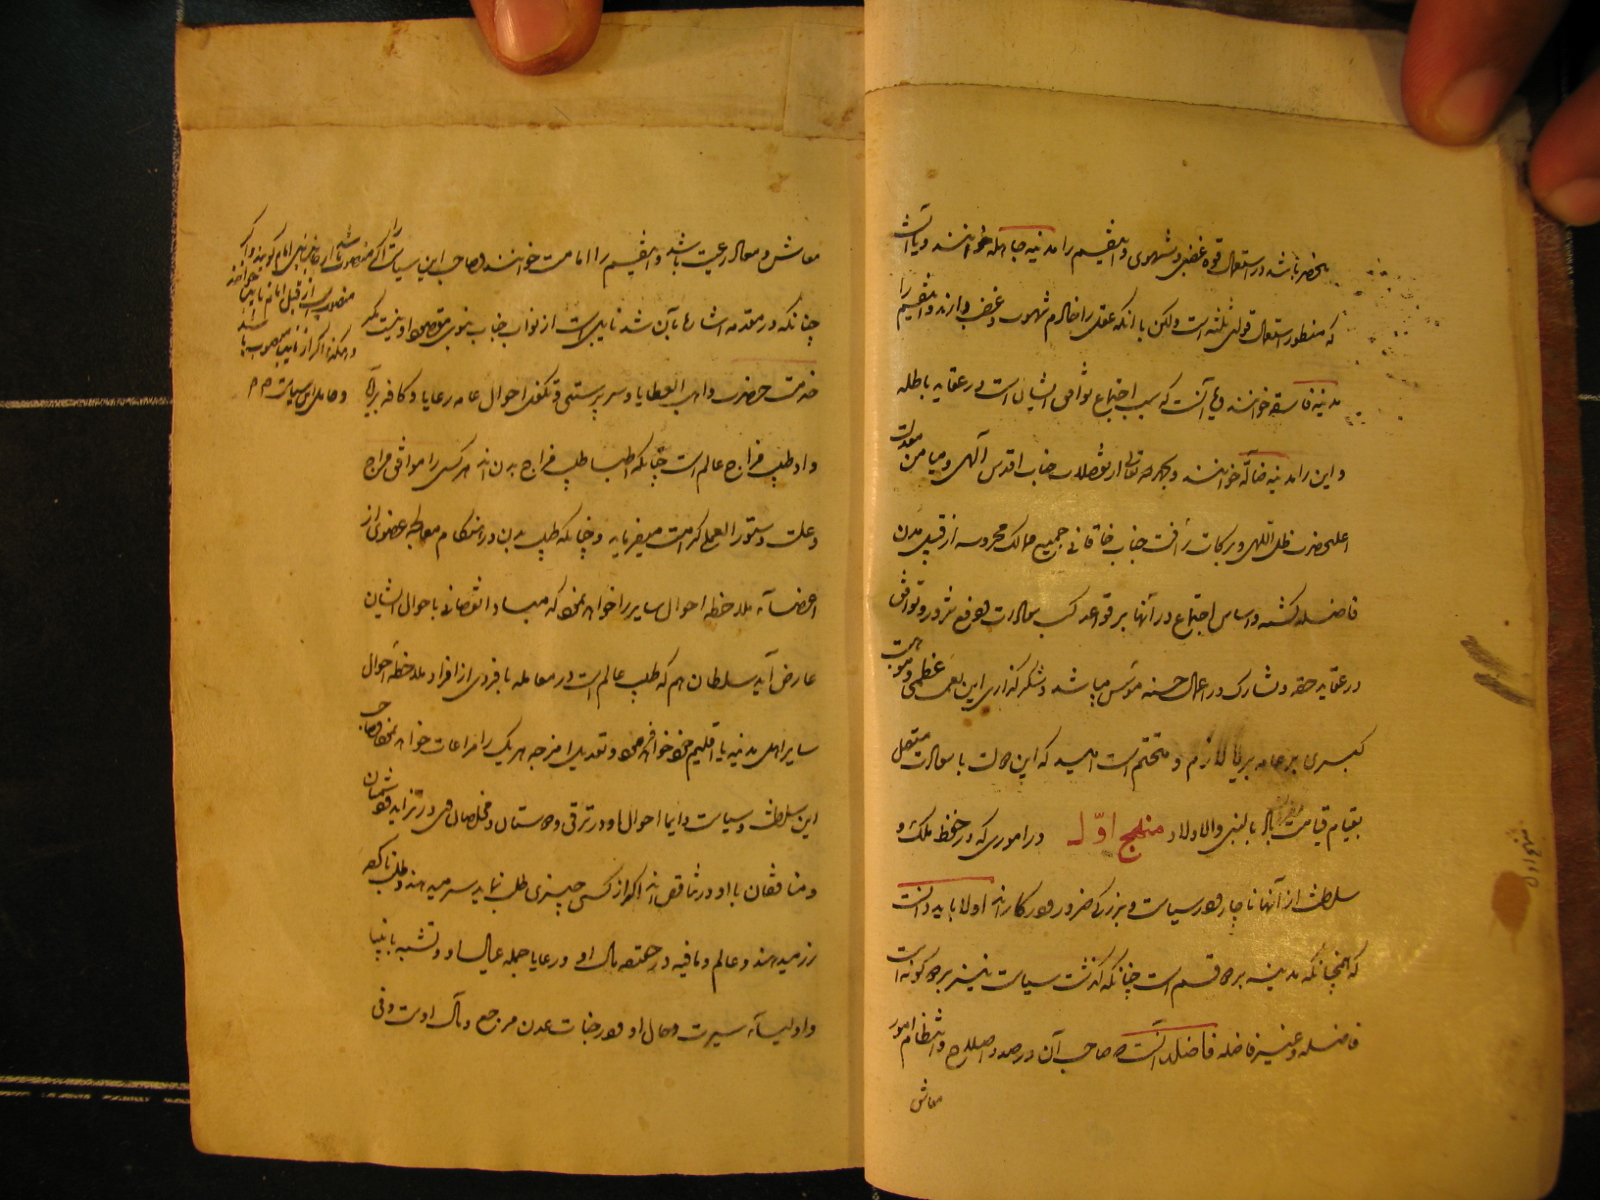 منحصر باشد در استعمال قوه غضبی و شهوی و اینقسم را مدینه جاهله خوانند و یا آنست
که منظور استعمال قوای ثلثه است ولکن با آنکه عقل را خادم شهوت و غضب دارند و اینقسم را
مدینه فاسقه خوانند و یا آنست که سبب اجتماع توافق ایشان است در عقاید باطله
و این را مدینه ضالّه خوانند و بحمد الله تعالی از تفضلات جناب اقدس آلهی و میامن معدلت
اعلیحضرت ظل اللهی و برکات رأفت جناب خاقانی جمیع ممالک محروسه از قبیل مدن
فاضله گشته و اساس اجتماع در آنها بر قواعد کسب سعادت و دفع شرور و توافق
در عقاید حقه و مشارکت در اعمال حسنه مؤسس میباشد و شکرگذاری این نعمت عظمی و موهبت
کبری بر عامه برایا لازم و متحتم است امید که این دولت با سعادت متصل
بقیام قیامت باد بالنبی و الاولاد منهج اوّل در اموری که در حفظ ملک و
سلطنت از آنها ناچار و در سیاست و بزرگی ضرور و در کارند اولا باید دانست
که همچنانکه مدینه بر دو قسم است چنانکه گذشت سیاست نیز بر دو گونه است
فاضله و غیر فاضله فاضله آنست که صاحب آن در صدد اصلاح و انتظام امور
معاش
منهج اول
معاش و معاد رعیت باشد و اینقسم را امامت خوانند و صاحب این سیاست را اگر
چنانکه در مقدمه اشاره بآن شد نایبی است از نواب جناب نبوی مقصود او نیست مگر
خدمت حضرت واهب العطایا و سرپرستی و تکفل احوال عامه رعایا و کافه برایا
و او طبیب مزاج عالم است چنانکه اطبا طبیب مزاج بدن اند هر کسی را موافق مزاج
و علت دستور العمل کرامت میفرماید و چنانکه طبیب بدن در هنگام معالجه عضوی از
اعضاء ملاحظه احوال سایر را خواهد نمود که مبادا نقصانی باحوال ایشان
عارض آید سلطان هم که طبیب عالم است در معامله با فردی از افراد ملاحظه احوال
سایر اهل مدینه یا اقلیم خود خواهد نمود و تعدیل امزجه هر یک را مراعات خواهد نمود صاحب
این سلطنت و سیاست دایما احوال او در ترقی و دوستان و مخلصان وی در تزاید و دشمنان
و منافقان با او در تناقص اند اگر از کسی چیزی طلب نماید سر میدهند و طلب ناکرده
زر میدهند و عالم و مافیه در حقیقت مال او و رعایا جمله عیال او و تشبه بانبیا
و اولیاء سیرت و حال او و در جنات عدن مرجع و مآل اوست وفی
منصوب باشد از جانب نبی امام گویند و اگر
منصوب از قبل امام نایب خوانند
و همکذا اگر از نایب منصوب باشد
و حامل این سیاست